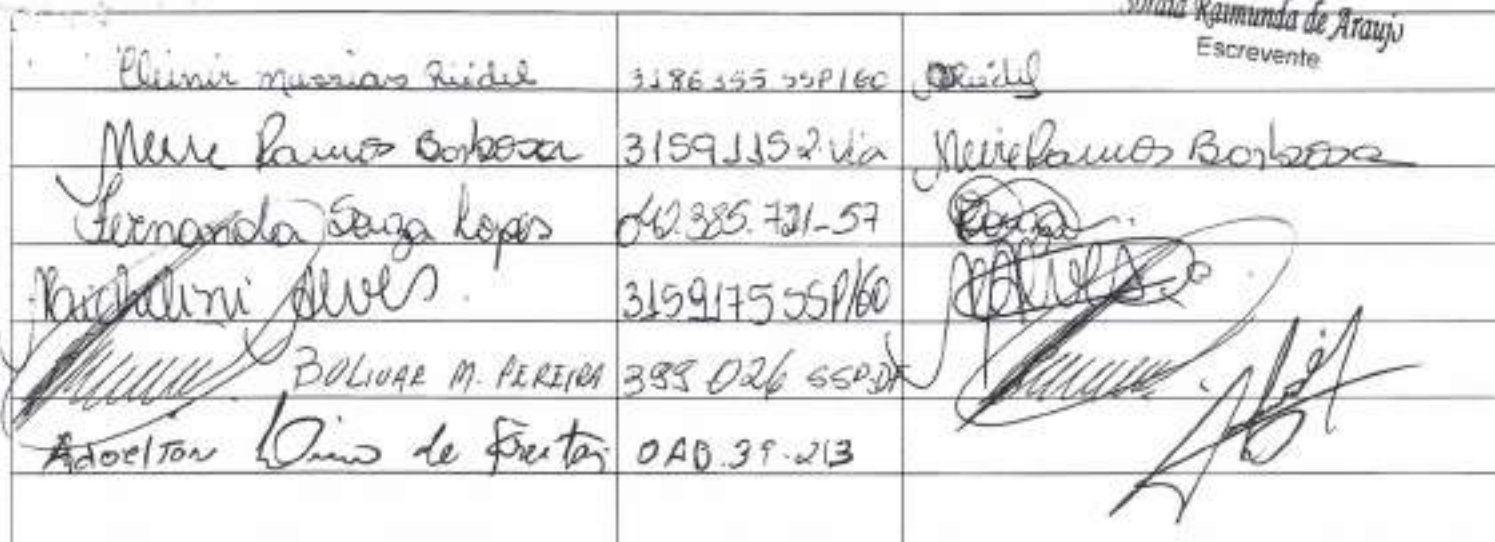 Raimunda de Araujo
Escrevente
Riedel 3186355 SSP/GO
Meire Ramos Barbosa 3159115 2 via Meire Ramos Barbosa
Fernanda Souza Lopes 040.385.721-57
Alves 3159175 SSP/GO
BOLIVAR M. PEREIRA 399 026 SSP.DF
Adoelton de Freitas OAB.39.213